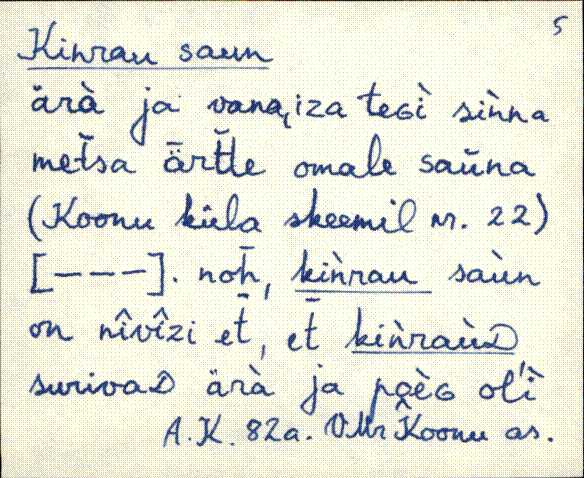 5
Kinrau saun
ärà ja vana iza teGì sìnna
met̄sa ǟrt̄le omale saūna
(Koonu küla skeemil nr. 22)
[---]. noh̄, kìnrau saùn
on nîvîzi et̄, et̄ kìnraùD
surivaD ärà ja poèG ol'ì
A.K. 82a. VMr Koonu as.